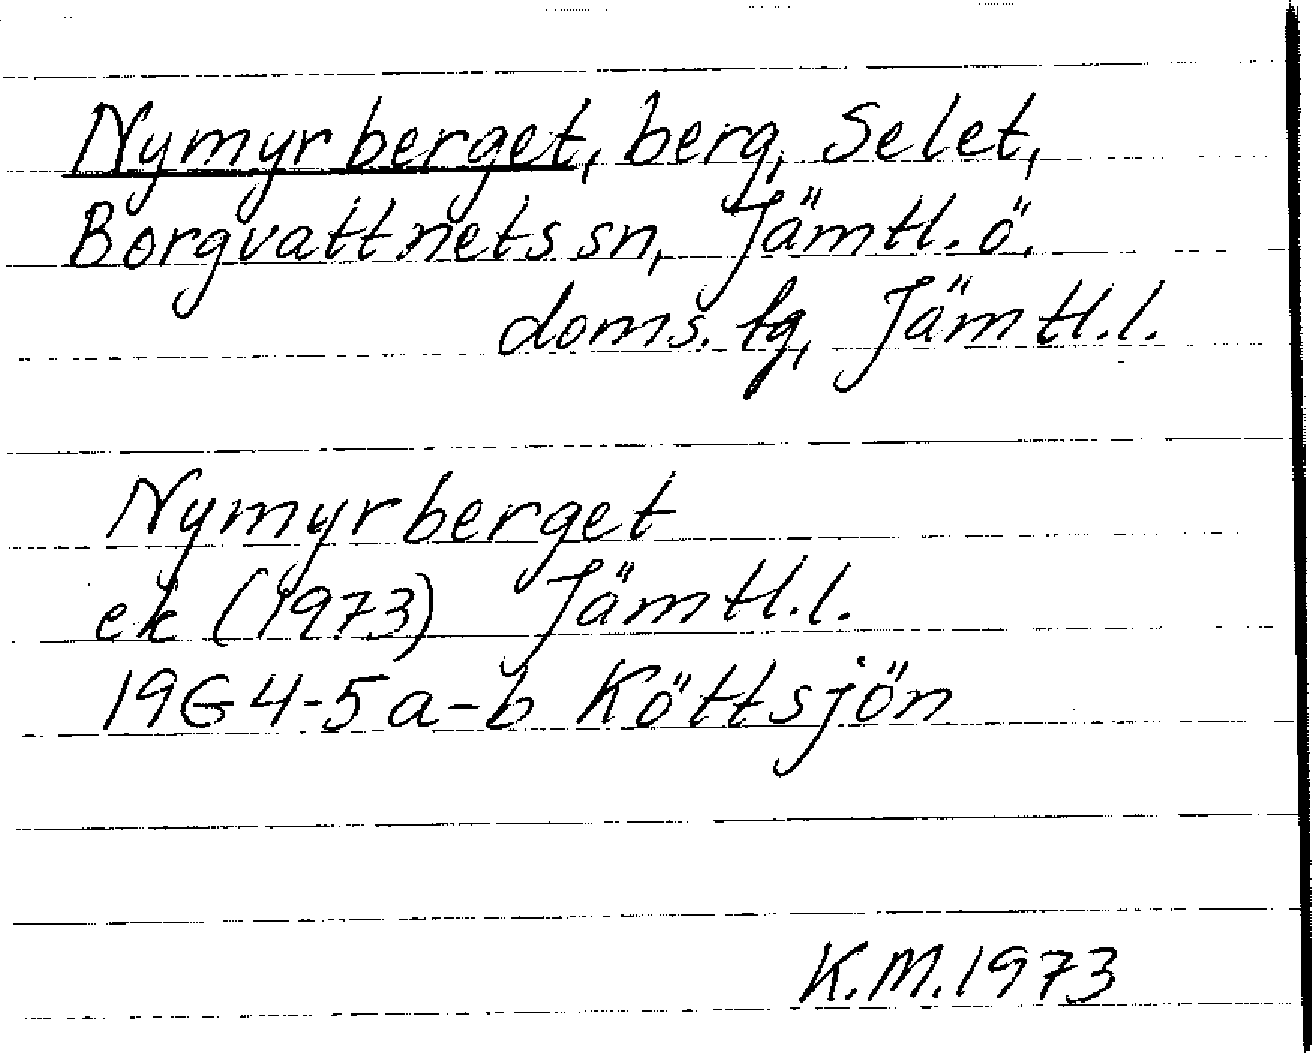 Nymyrberget, berg, Selet,
Borgvattnets sn, Jämtl. ö.
doms. tg, Jämtl. l.
Nymyrberget
ek (1973) Jämtl. l.
19G4-5a-b Köttsjön
K.M. 1973